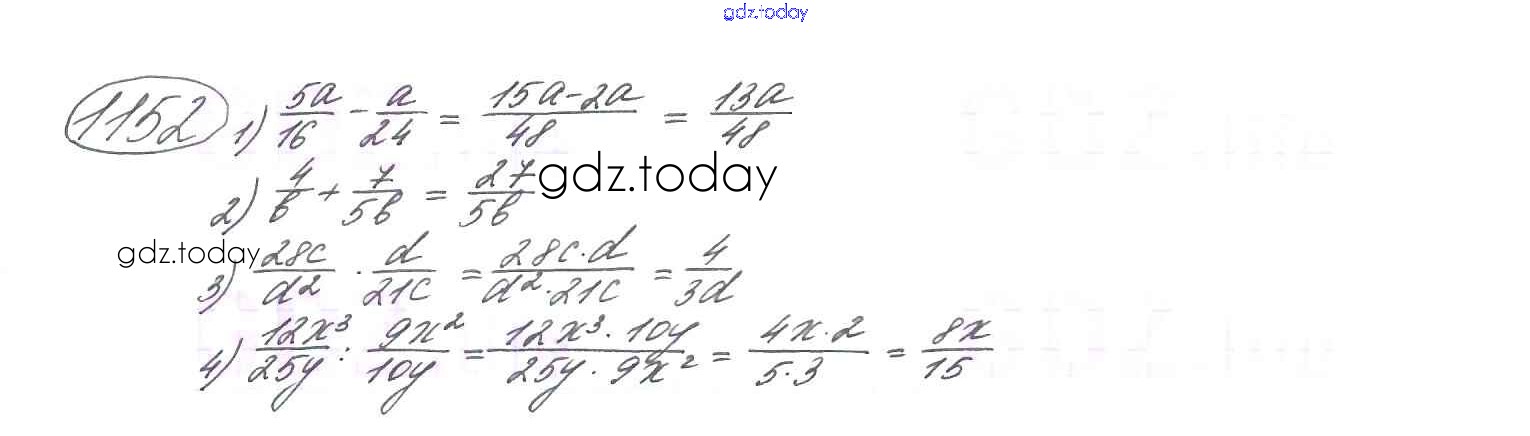 gdz.today
1152 1) 5a/16 - a/24 = (15a-2a)/48 = 13a/48
2) 4/b + 7/5b = 27/5b gdz.today
gdz.today 3) 28c/d² · d/21c = (28c·d)/(d²·21c) = 4/3d
4) 12x³/25y : 9x²/10y = (12x³·10y)/(25y·9x²) = (4x·2)/(5·3) = 8x/15